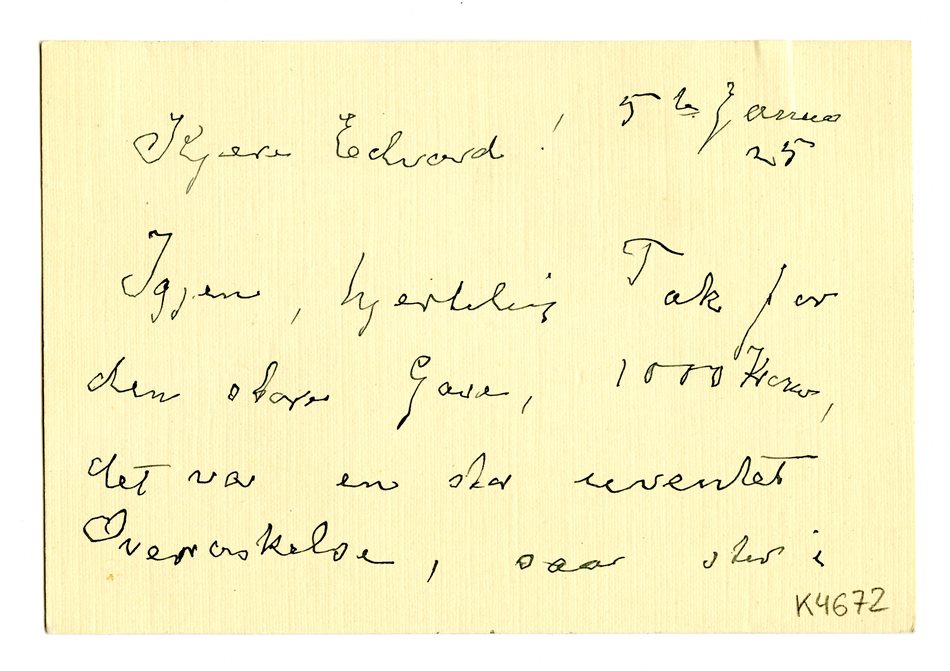 Kjære Edvard! 5te Januar
25
Igjen, hjertelig Tak for
den store Gave, 1000 Kroner,
det var en stor uventet
Overraskelse, saa stor i
K4672